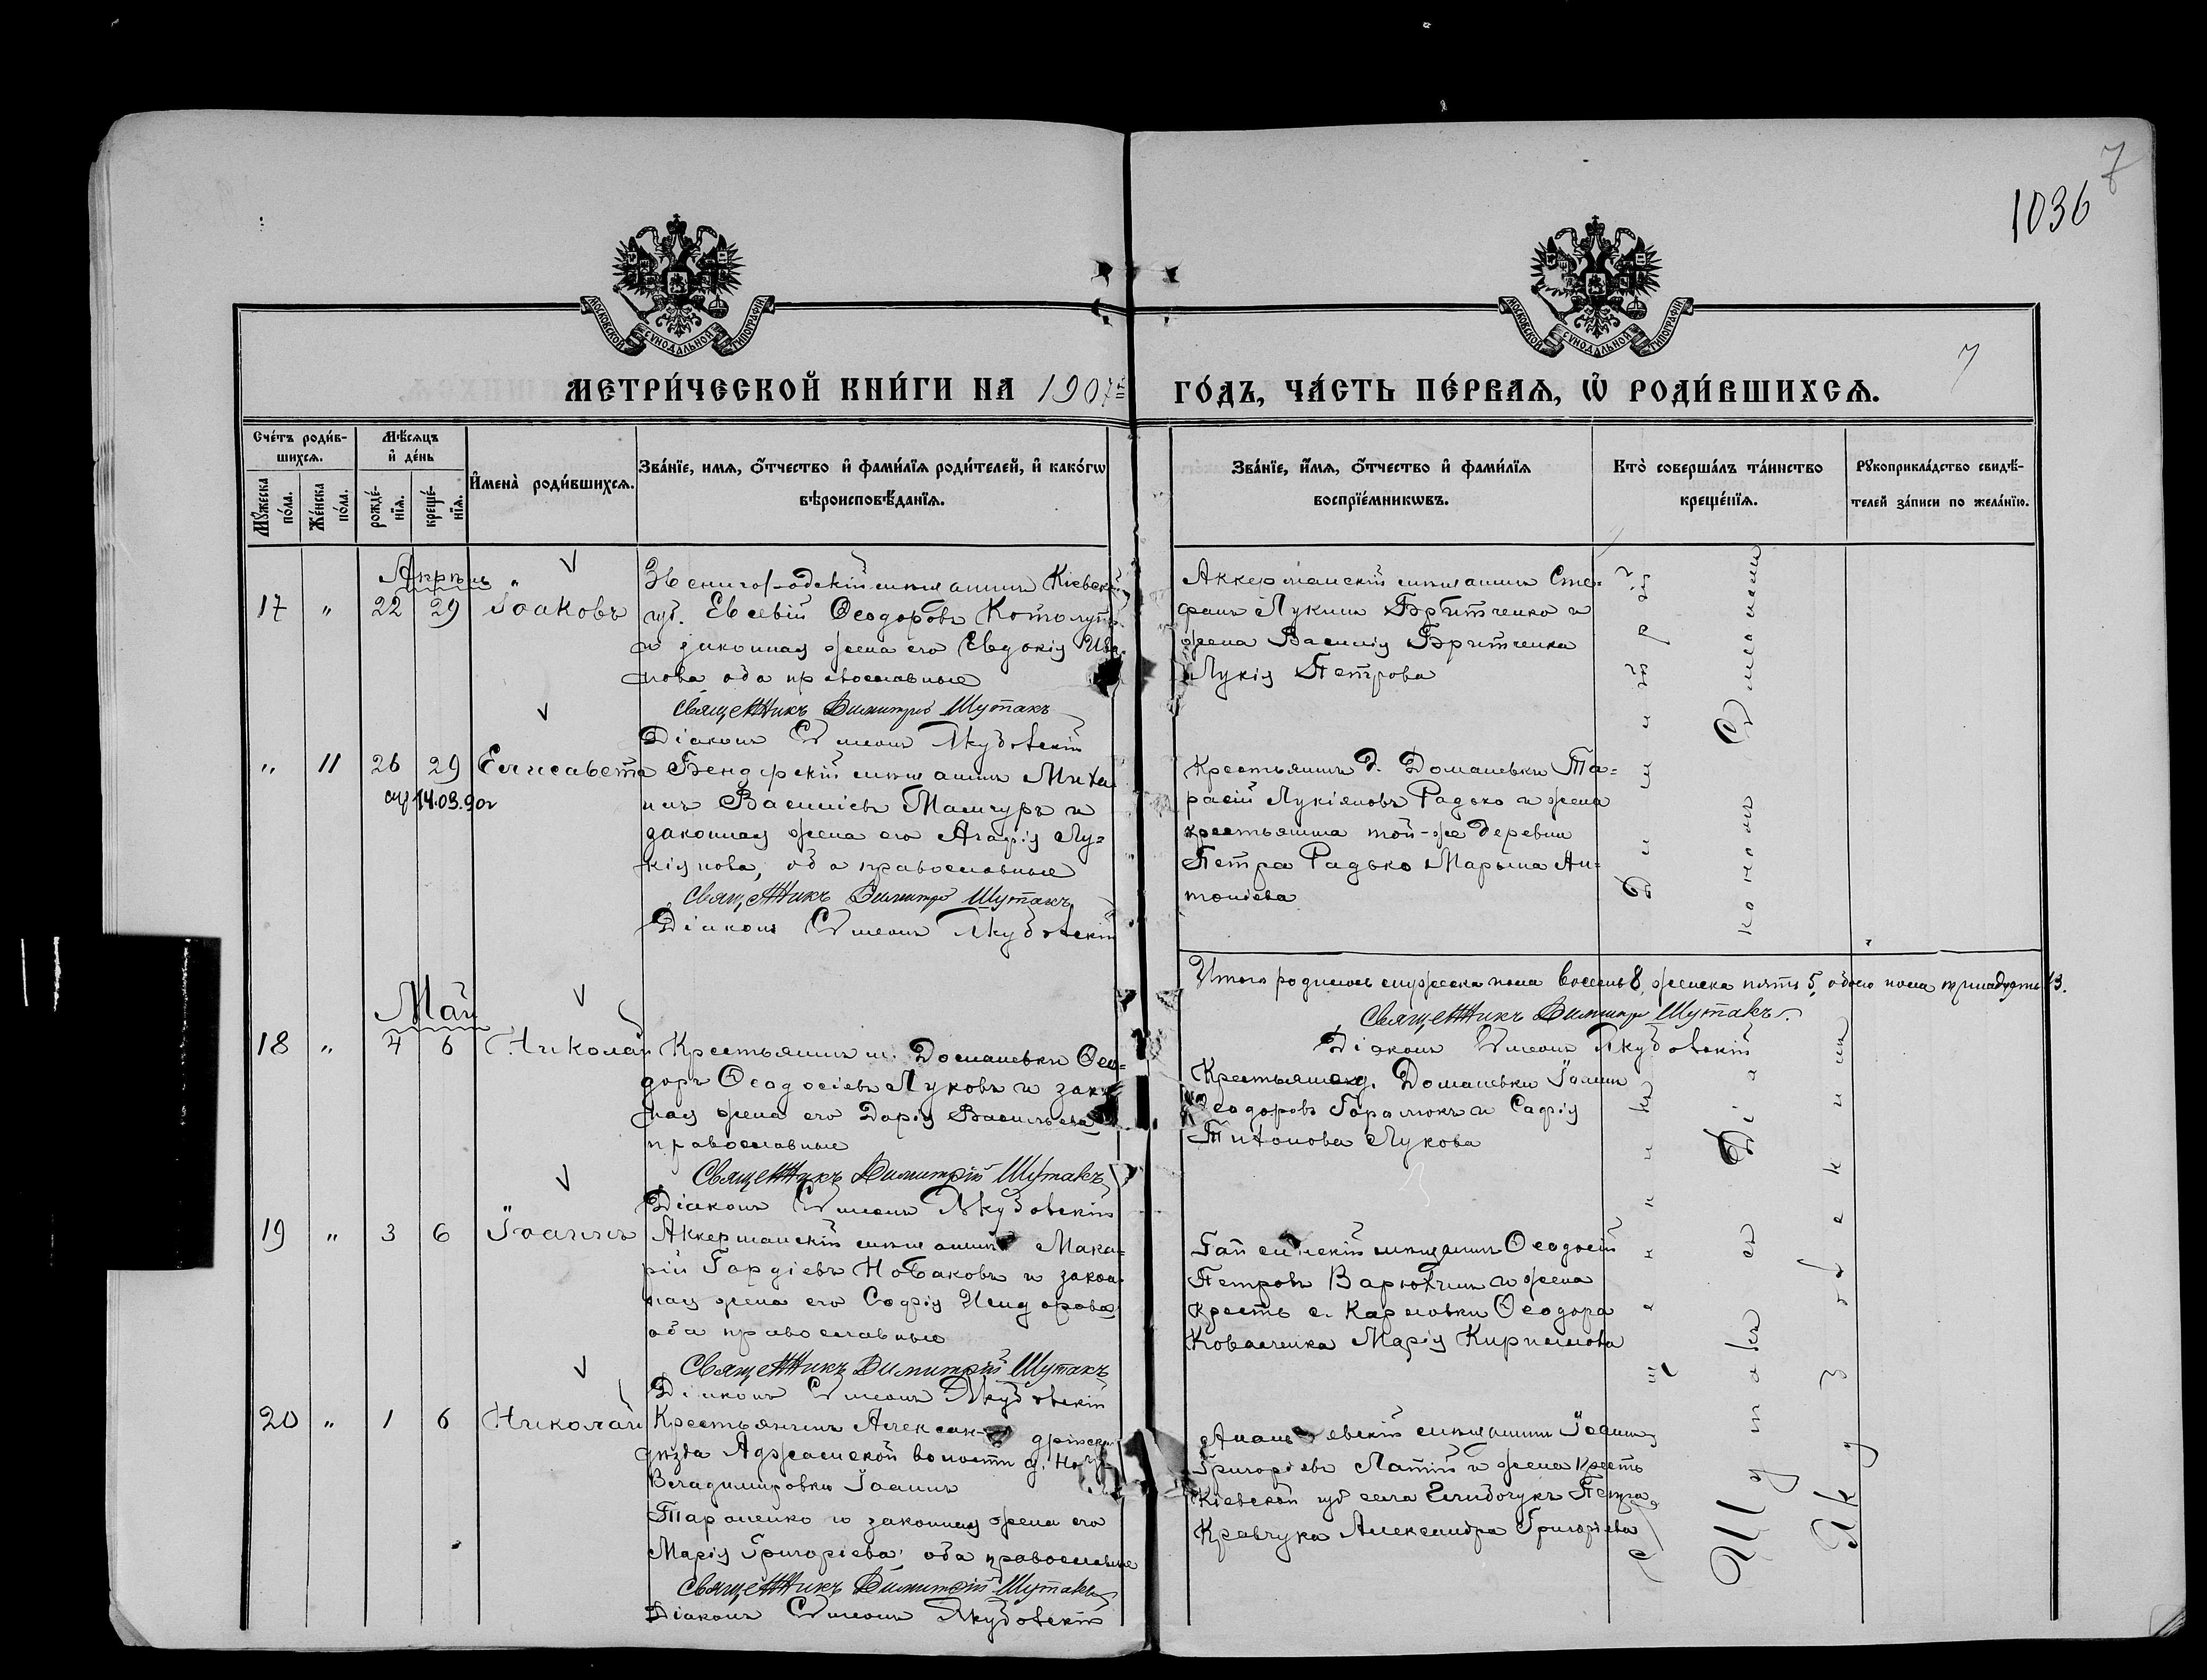 7
1036
МОСКОВСКОЙ СУНОДАЛЬНОЙ ТИПОГРАФІИ
МОСКОВСКОЙ СУНОДАЛЬНОЙ ТИПОГРАФІИ
7
МЕТРИ́ЧЕСКОЙ КНИ́ГИ НА 1907
ГО́ДЪ, ЧА́СТЬ ПЕ́РВАѦ, Ѡ҆ РОДИ́ВШИХСѦ.
Сче́тъ роди́в-
шихсѧ.
Мꙋ́жеска по́ла.
Же́нска по́ла.
Мѣ́сѧцъ
и҆ де́нь
рожде́-
нїѧ.
креще́-
нїѧ.
И҆мена̀ роди́вшихсѧ.
Зва́нїе, имѧ, ѻ҆́тчество и҆ фами́лїѧ роди́телей, и҆ како́гѡ
вѣроисповѣ́данїѧ.
Зва́нїе, и҆́мѧ, ѻ҆́тчество и҆ фами́лїѧ
воспрїе́мникѡвъ.
Кто̀ соверша́лъ та́инство
креще́нїѧ.
Рꙋкоприкла́дство свидѣ́-
телей за́писи по жела́нїю.
Апрѣль
17 " 22 29 Іоаковъ
Звенигородскій мѣщанинъ Кіевск.
губ. Евсевій Ѳеодоровъ
и законная жена его Евдокія Ива-
нова оба православные
Священникъ Димитрій Шутакъ
Діаконъ Симеонъ Якубовскій
Аккерманскій мѣщанинъ Сте-
фанъ Лукинъ Бритченко и
жена Василія Бритченка
Лукія Петрова
" 11 26 29 Елисавета
14.03.90
Бендерскій мѣщанинъ Миха-
илъ Василіевъ Манчуръ и
законная жена его Агафія Лу-
кіянова, оба православные
Священникъ Димитрій Шутакъ
Діаконъ Симеонъ Якубовскій
Крестьянинъ д. Доманевки Та-
расій Лукіяновъ Радько и жена
крестьянина той-же деревни
Петра Радько Марьяна Ан-
тоніева
Итого родилось мужеска пола восемь 8, женска пять 5, обоего пола тринадцать 13.
Священникъ Димитрій Шутакъ
Діаконъ Симеонъ Якубовскій
Май
18 " 4 6 Николай
Крестьянинъ Доманевки Ѳео-
доръ Ѳеодосіевъ Луковъ и закон-
ная жена его Дарія Васильева
православные
Священникъ Димитрій Шутакъ
Діаконъ Симеонъ Якубовскій
Крестьяне д. Доманевки Іоаннъ
Ѳеодоровъ Горолюкъ и Софія
Тихонова Лукова
19 " 3 6 Іоаннъ
Аккерманскій мѣщанинъ Мака-
рій Гордіевъ Новаковъ и закон-
ная жена его Софія Исидорова
оба православные
Священникъ Димитрій Шутакъ
Діаконъ Симеонъ Якубовскій
мѣщанинъ Ѳеодосій
Петровъ и жена
крест. с. Карловки Ѳеодора
Ковальчика Марія Кириллова
20 " 1 6 Николай
Крестьянинъ Александрійск.
уѣзда Аджамской волости д. Ново-
Владимировки Іоаннъ
Тараненко и законная жена его
Марія Григоріева, оба православные
Священникъ Димитрій Шутакъ
Діаконъ Симеонъ Якубовскій
Ананьевскій мѣщанинъ Іоаннъ
Григоріевъ Лапій и жена крест.
Кіевской губ села Петра
Кравчука Александра Григоріева
Священникъ Димитрій
Шутакъ съ Діакономъ Симеономъ
Якубовскимъ